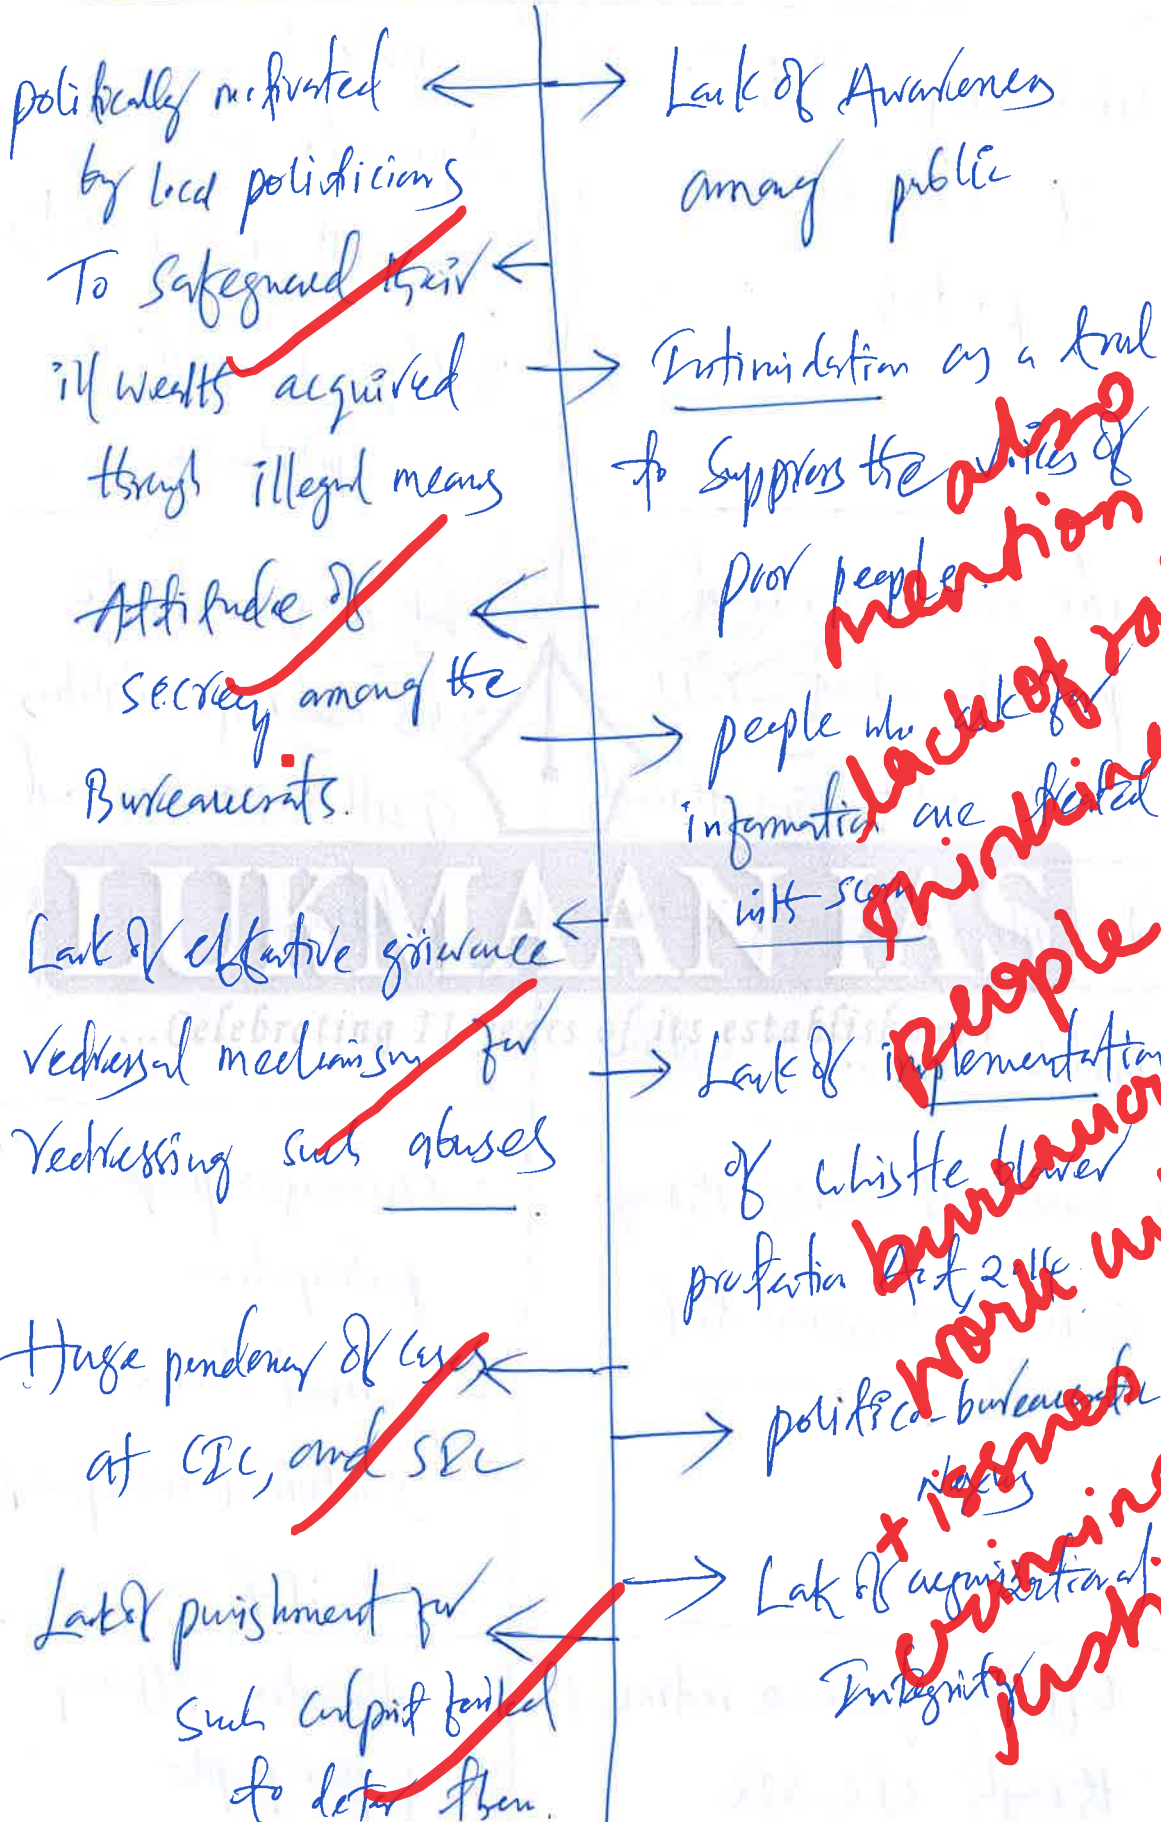 politically motivated
by local politicians
To safeguard their
ill wealth acquired
through illegal means
Attitude of
secrecy among the
Bureaucrats.
Lack of effective grievance
redressal mechanism for
redressing such abuses.
Huge pendency of cases
at CIC, and SIC
Lack of punishment for
such culprit failed
to deter them.
Lack of Awareness
among public.
Intimidation as a tool
to suppress the voices of
poor people.
people who ask for
information are treated
with scorn
Lack of implementation
of whistle blower
protection Act, 2014
politico-bureaucratic
Nexus
Lack of organizational
Integrity
also
mention
lack of
people
work
+ issues
LUKMAAN IAS
...Celebrating 11 years of its establish